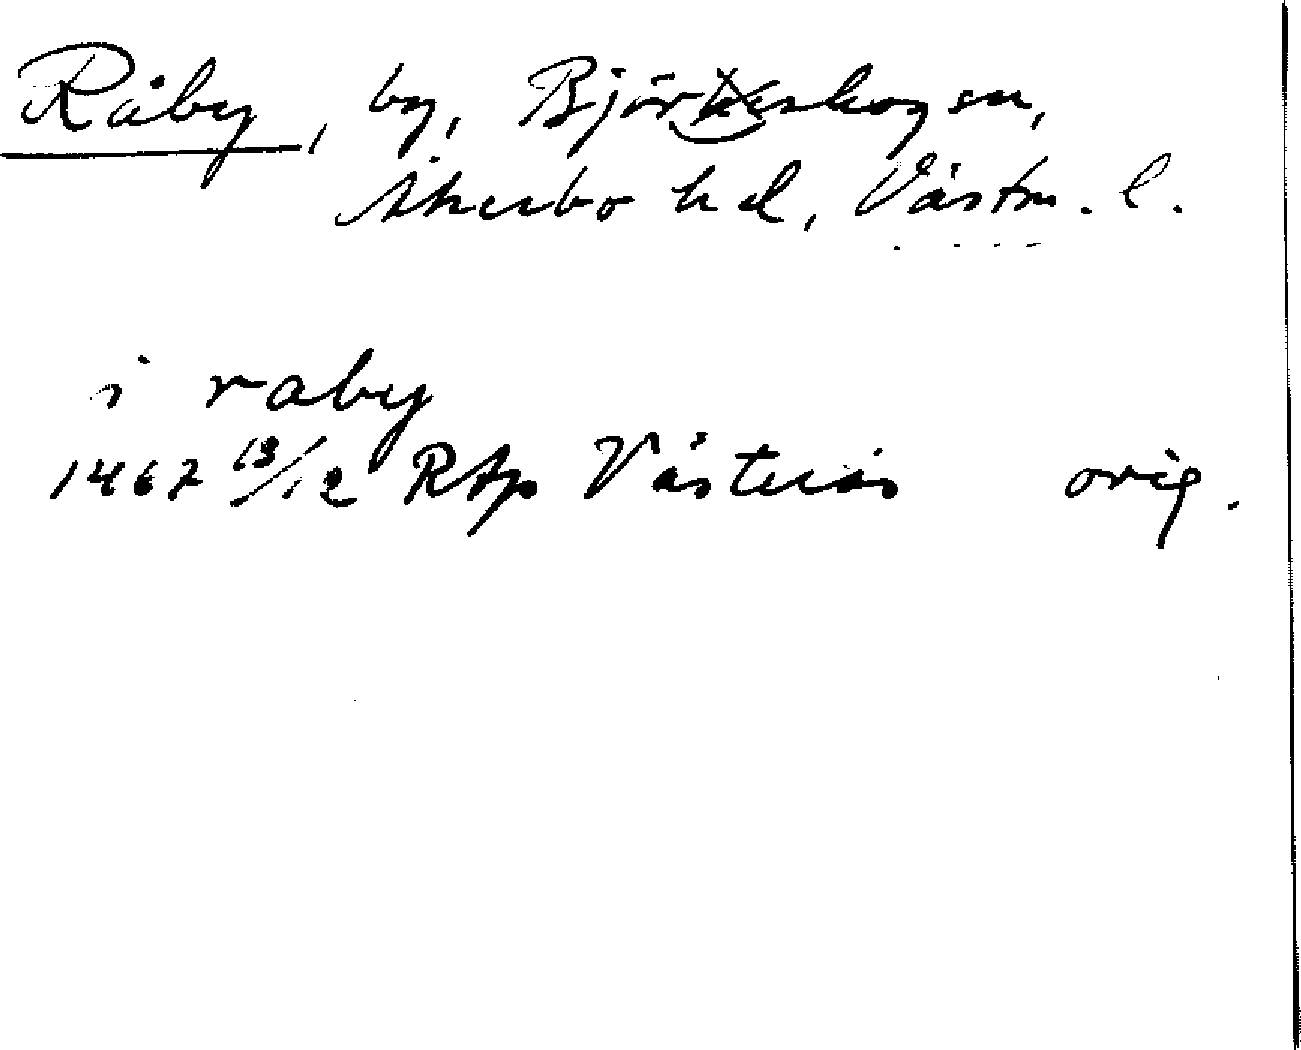 Råby, by, Björskogs sn,
Åkerbo hd, Västm. l.
i raby
1467 13/12 RAp Västerås orig.